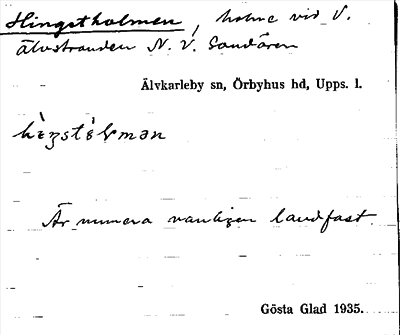 Hingstholmen, holme vid V.
älvstranden N. V. Sandören
Älvkarleby sn, Örbyhus hd, Upps. l.
Är numera vanligen landfast.
Gösta Glad 1935.